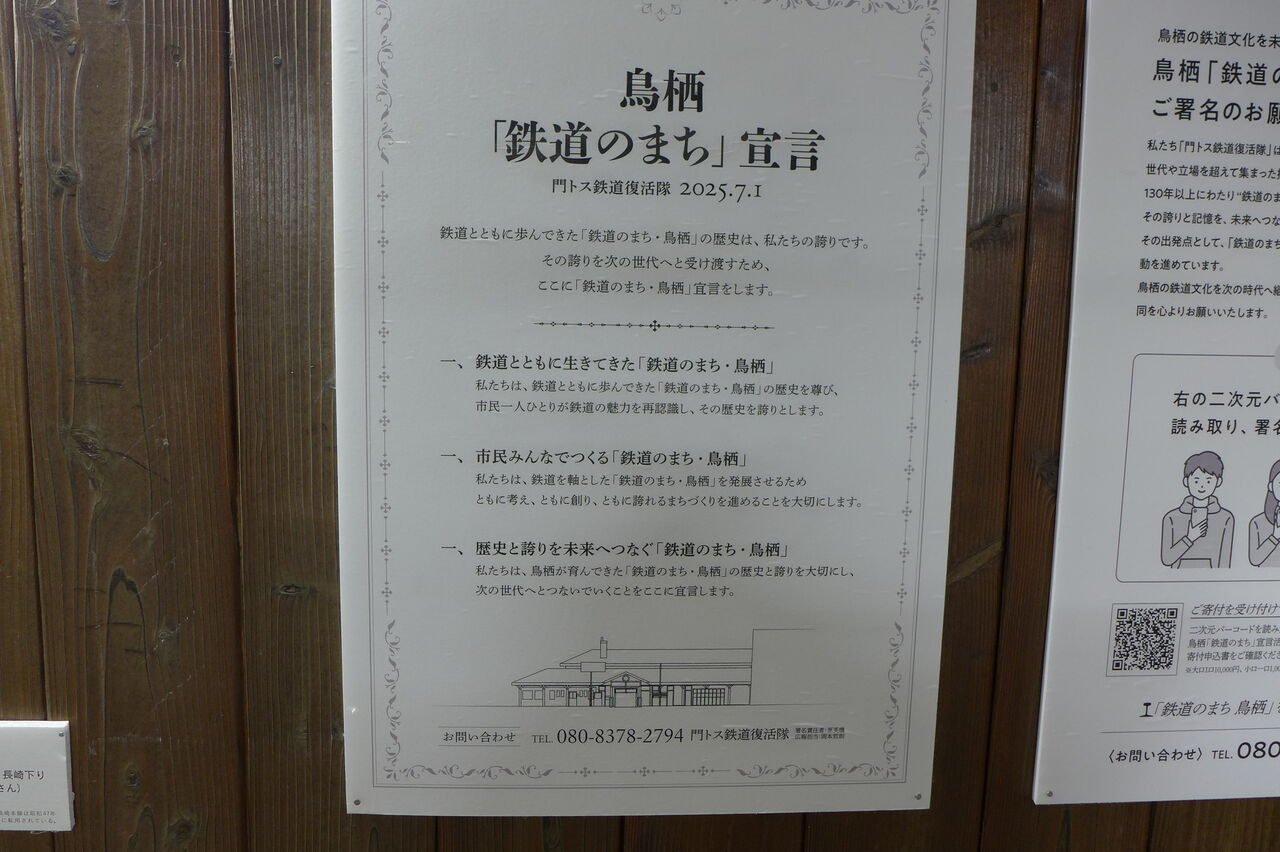 鳥栖
「鉄道のまち」宣言
門トス鉄道復活隊 2025.7.1
鉄道とともに歩んできた「鉄道のまち・鳥栖」の歴史は、私たちの誇りです。
その誇りを次の世代へと受け渡すため、
ここに「鉄道のまち・鳥栖」宣言をします。
一、鉄道とともに生きてきた「鉄道のまち・鳥栖」
私たちは、鉄道とともに歩んできた「鉄道のまち・鳥栖」の歴史を尊び、
市民一人ひとりが鉄道の魅力を再認識し、その歴史を誇りとします。
一、市民みんなでつくる「鉄道のまち・鳥栖」
私たちは、鉄道を軸とした「鉄道のまち・鳥栖」を発展させるため
ともに考え、ともに創り、ともに誇れるまちづくりを進めることを大切にします。
一、歴史と誇りを未来へつなぐ「鉄道のまち・鳥栖」
私たちは、鳥栖が育んできた「鉄道のまち・鳥栖」の歴史と誇りを大切にし、
次の世代へとつないでいくことをここに宣言します。
お問い合わせ TEL. 080-8378-2794 門トス鉄道復活隊
鳥栖の鉄道文化を未
鳥栖「鉄道の
ご署名のお願
私たち「門トス鉄道復活隊」は
世代や立場を超えて集まった
130年以上にわたり“鉄道のま
その誇りと記憶を、未来へつな
その出発点として、「鉄道のまち
動を進めています。
鳥栖の鉄道文化を次の時代へ
同を心よりお願いいたします。
右の二次元バ
読み取り、署名
ご寄付を受け付け
二次元バーコードを読み
鳥栖「鉄道のまち」宣言活
寄付申込書をご確認くださ
※大口1口10,000円、小口一口1,00
「鉄道のまち 鳥栖」
〈お問い合わせ〉 TEL. 080
長崎下り
さん）
長崎本線は昭和47年
に転用されている。